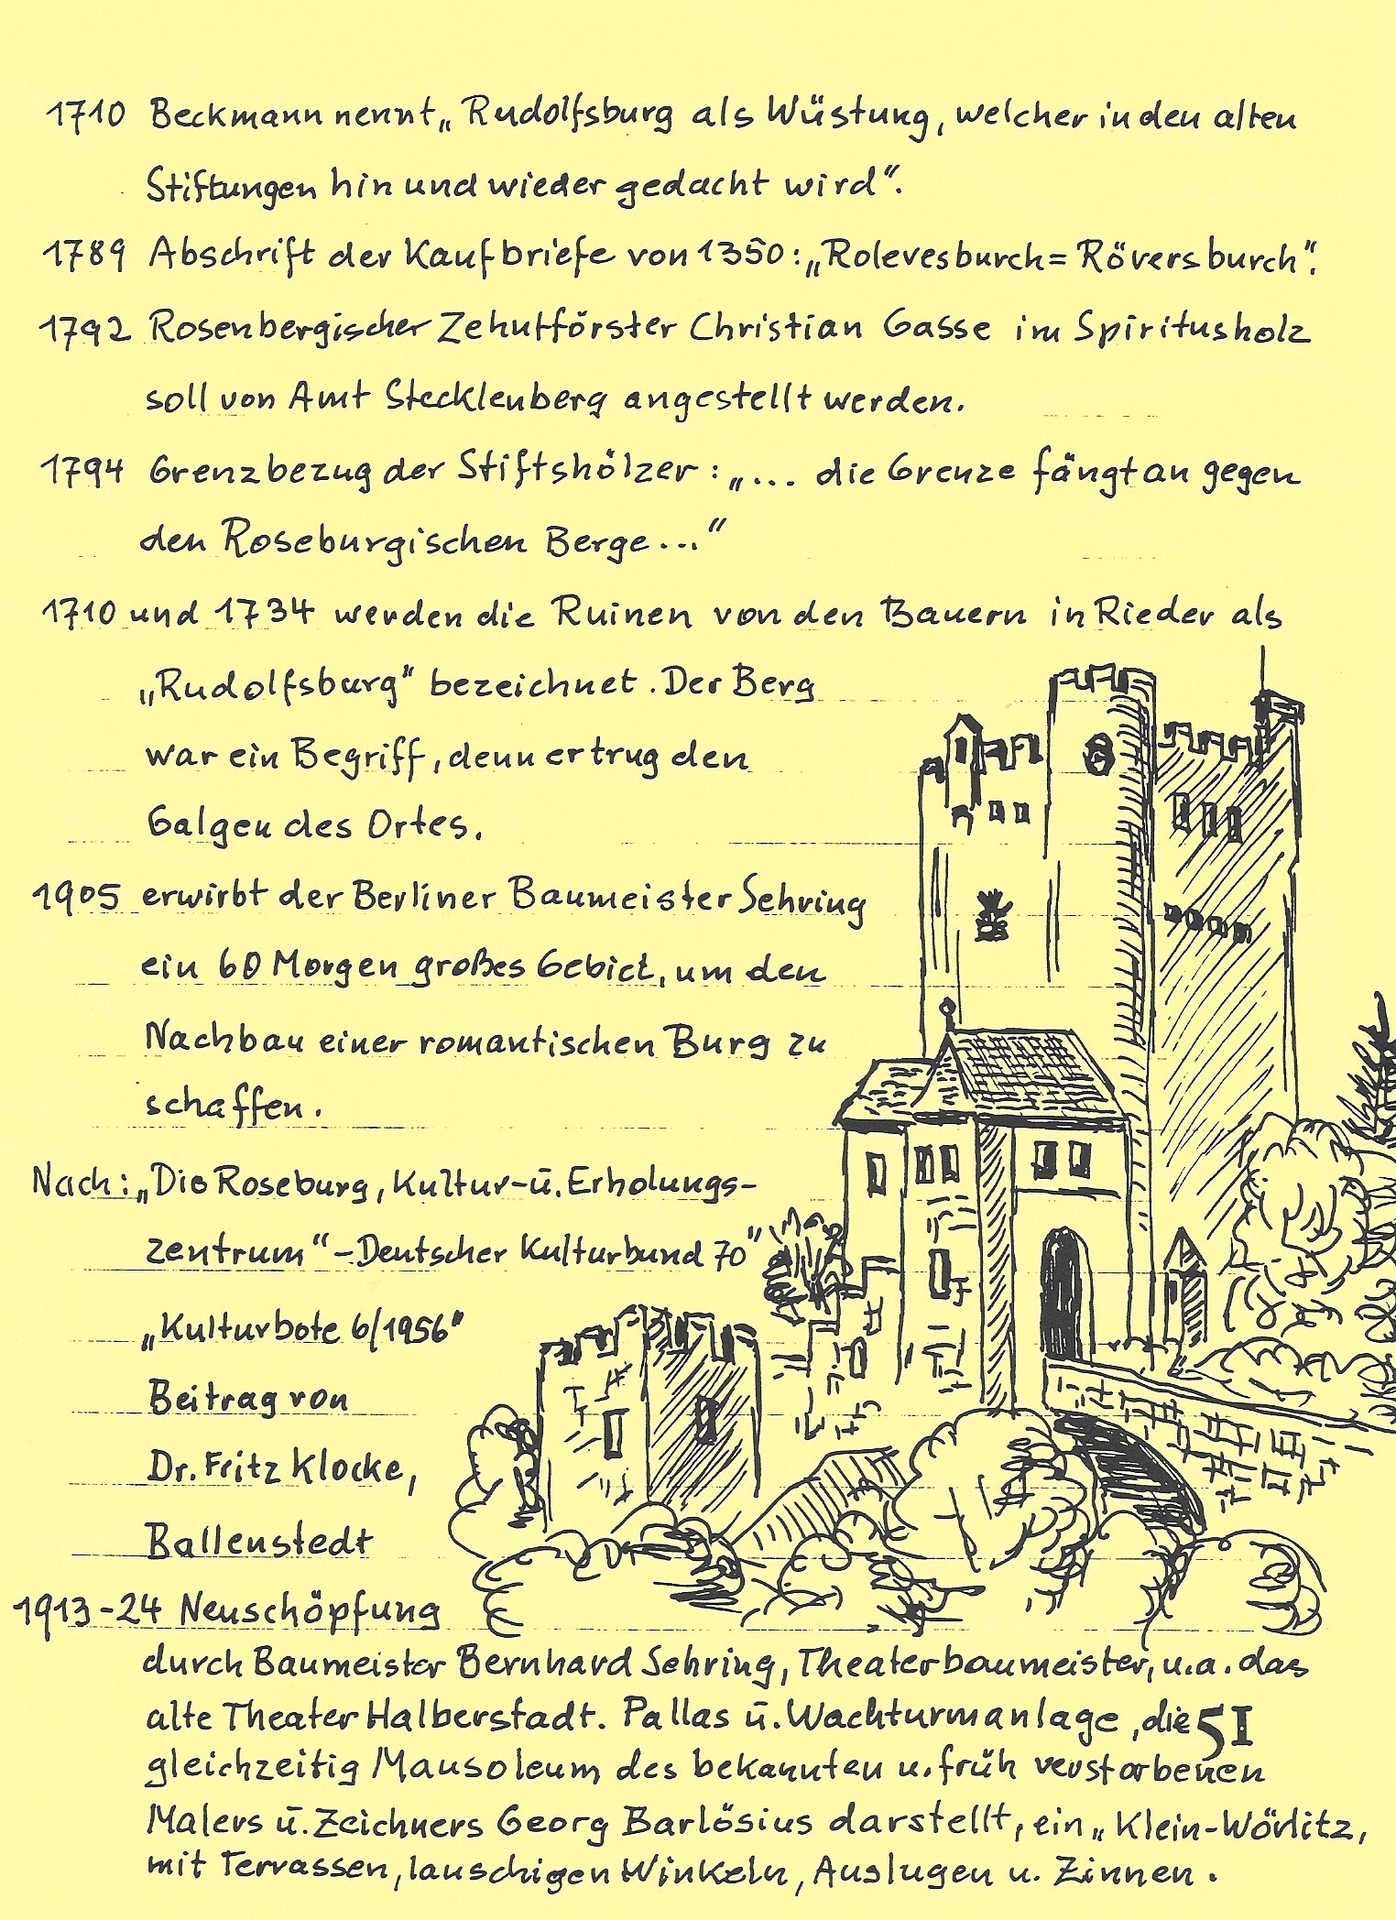 1710 Beckmann nennt „Rudolfsburg als Wüstung, welcher in den alten
Stiftungen hin und wieder gedacht wird“.
1789 Abschrift der Kaufbriefe von 1350: „Rolevesburch= Röversburch“.
1792 Rosenbergischer Zehutförster Christian Gasse im Spiritusholz
soll von Amt Stecklenberg angestellt werden.
1794 Grenzbezug der Stiftshölzer: „... die Grenze fängt an gegen
den Roseburgischen Berge...“
1710 und 1734 werden die Ruinen von den Bauern in Rieder als
„Rudolfsburg“ bezeichnet. Der Berg
war ein Begriff, denn er trug den
Galgen des Ortes.
1905 erwirbt der Berliner Baumeister Sehring
ein 60 Morgen großes Gebiet, um den
Nachbau einer romantischen Burg zu
schaffen.
Nach: „Die Roseburg, Kultur- ū. Erholungs-
zentrum“ - Deutscher Kulturbund 70“
„Kulturbote 6/1956“
Beitrag von
Dr. Fritz Klocke,
Ballenstedt
1913-24 Neuschöpfung
durch Baumeister Bernhard Sehring, Theaterbaumeister, u.a. das
alte Theater Halberstadt. Pallas ū. Wachturmanlage, die 51
gleichzeitig Mausoleum des bekannten u. früh verstorbenen
Malers ū. Zeichners Georg Barlösius darstellt, ein „Klein-Wörlitz,
mit Terrassen, lauschigen Winkeln, Auslugen u. Zinnen.